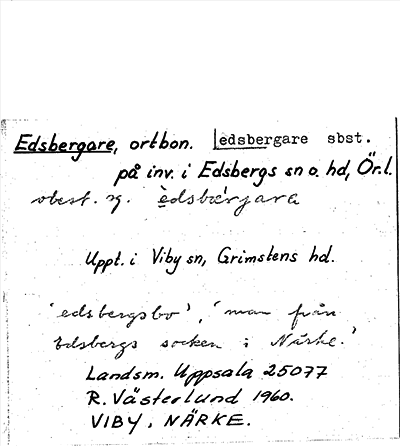 Edsbergare, ortbon. edsbergare sbst.
på inv. i Edsbergs sn o. hd, Ör.l.
obest. sg. èdsbærjara
Uppt. i Viby sn, Grimstens hd.
'edsbergsbo', 'man från
Edsbergs socken i Närke.'
Landsm. Uppsala 25077
R. Västerlund 1960.
VIBY, NÄRKE.